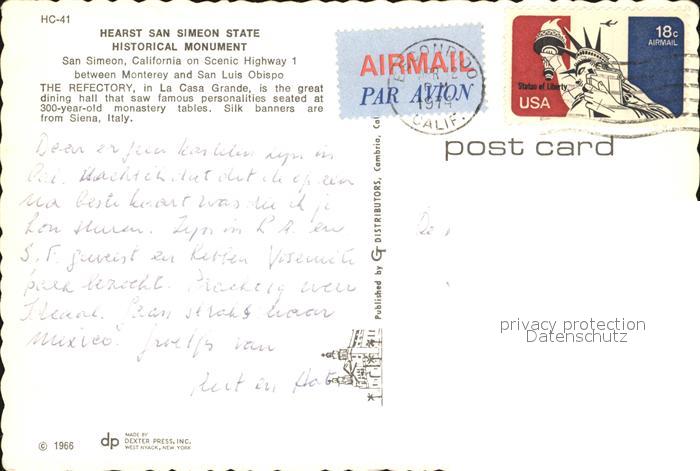 HC-41
HEARST SAN SIMEON STATE
HISTORICAL MONUMENT
San Simeon, California on Scenic Highway 1
between Monterey and San Luis Obispo
THE REFECTORY, in La Casa Grande, is the great
dining hall that saw famous personalities seated at
300-year-old monastery tables. Silk banners are
from Siena, Italy.
AIRMAIL
PAR AVION
CALIF.
18c
AIRMAIL
Statue of Liberty
USA
post card
Daar er geen kastelen zijn in
dat dit de op een
na beste kaart was die ik je
kon sturen. Zijn in L.A. en
S.F. geweest en hebben Yosemite
park bezocht. Prachtig weer
Gaan straks naar
Mexico. Groetjes van
en
Published by GT DISTRIBUTORS, Cambria, Cal
privacy protection
Datenschutz
© 1966
dp
MADE BY
DEXTER PRESS, INC.
WEST NYACK, NEW YORK